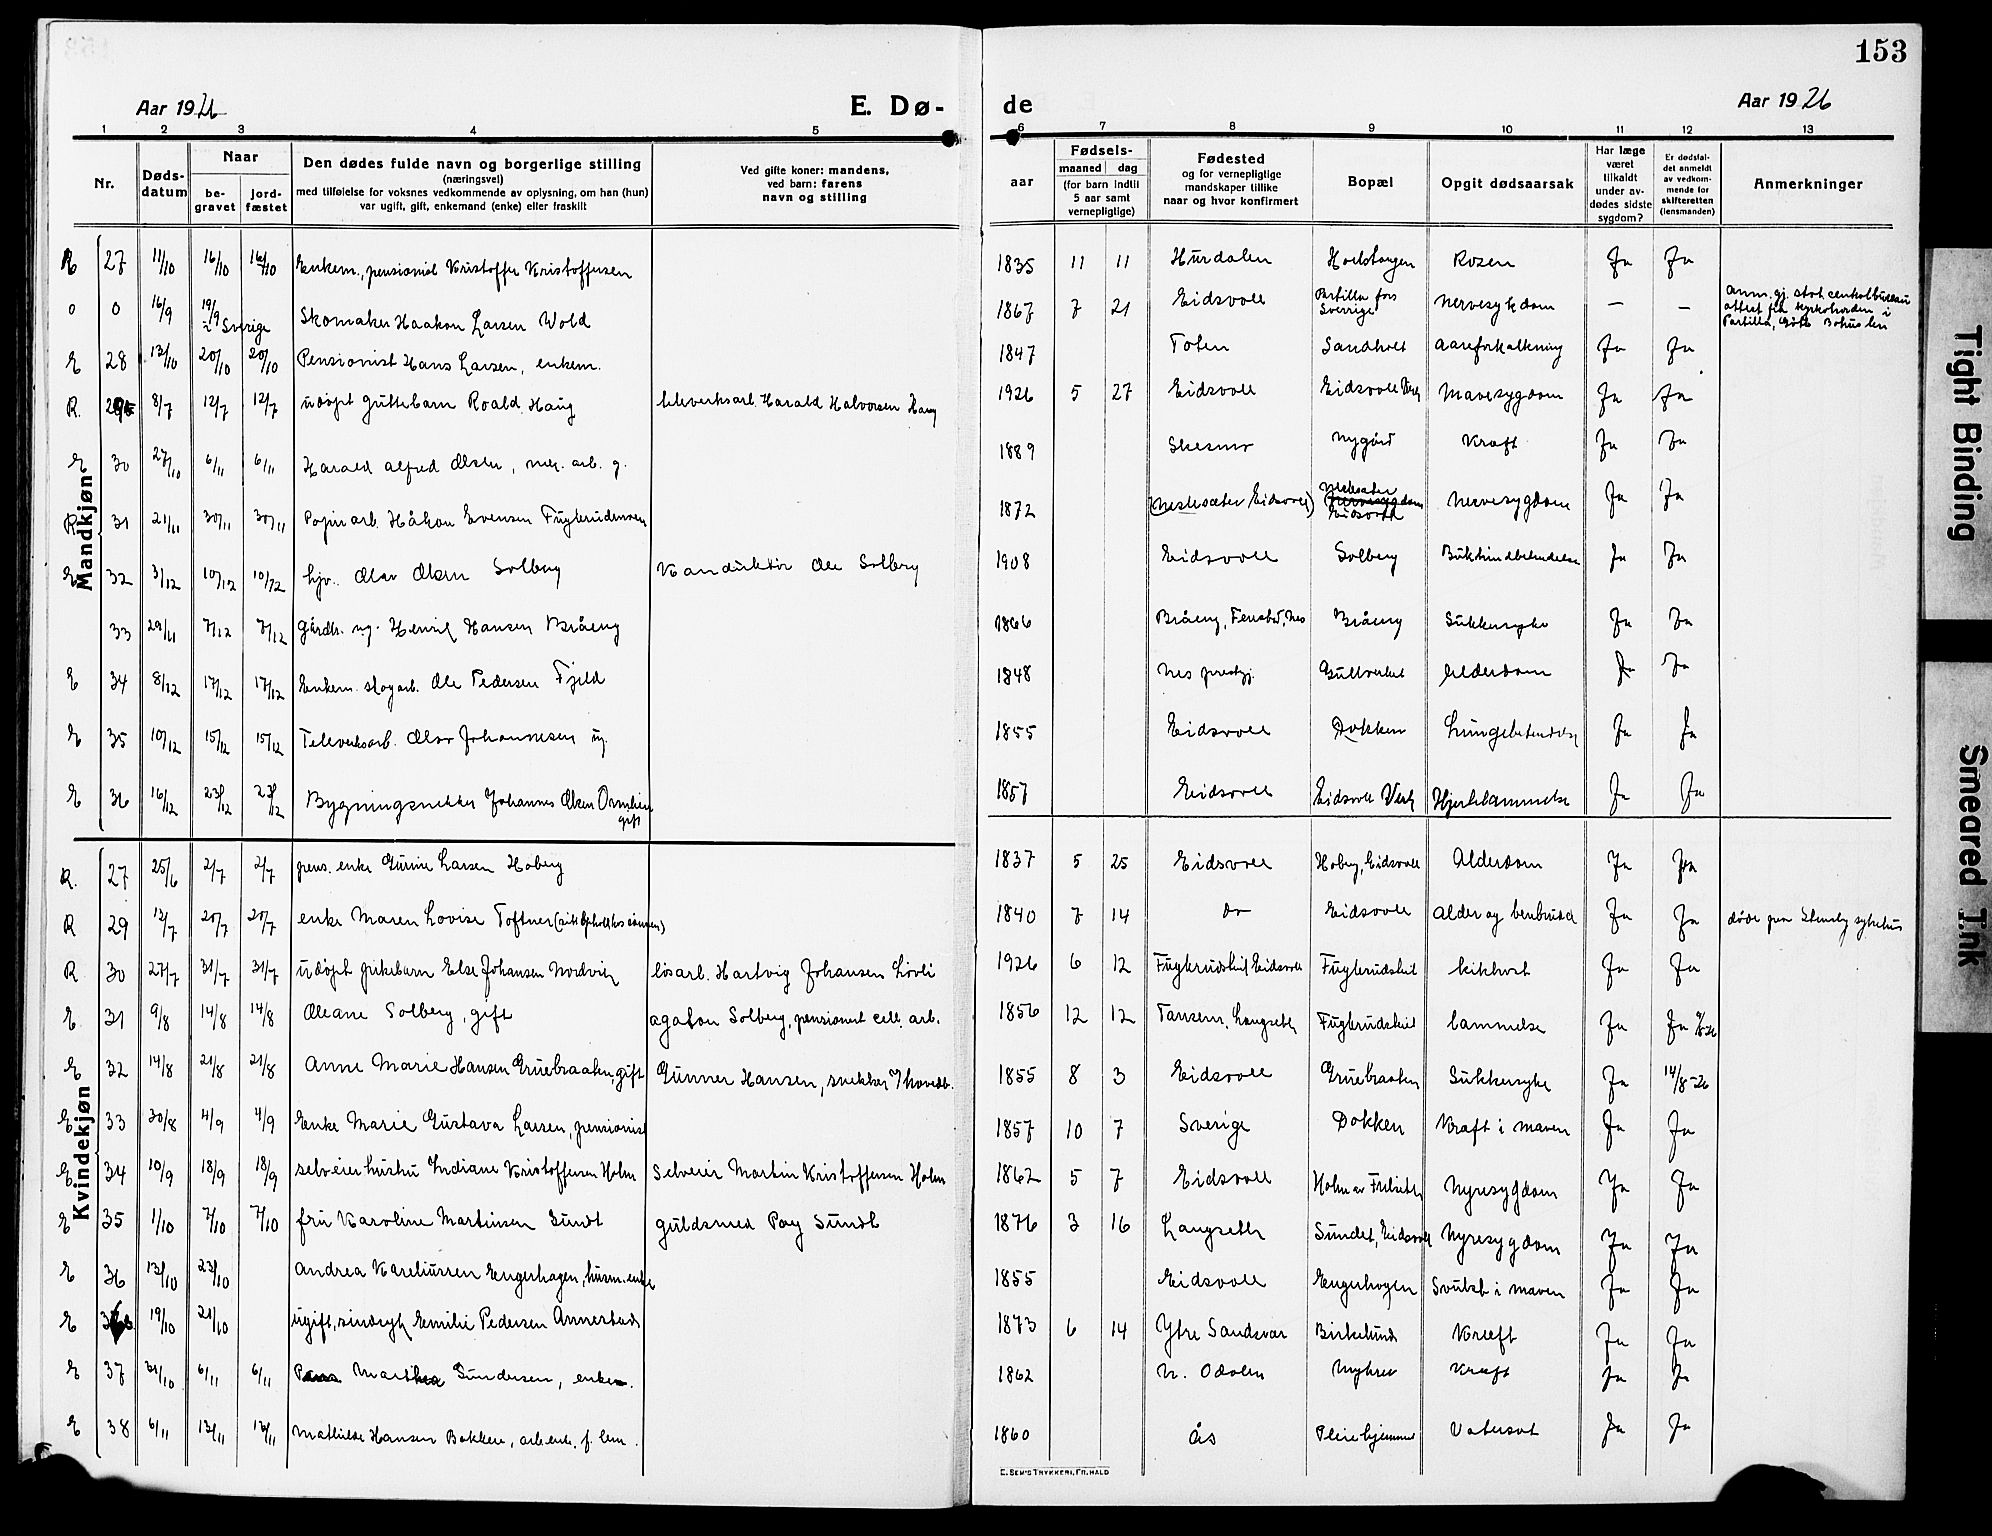 153
Aar 1926
E. Dø-
de
Aar 1926
1 2 3 4 5 6 7 8 9 10 11 12 13
Nr.
Døds-
datum
Naar
be-
gravet
jord-
fæstet
Den dødes fulde navn og borgerlige stilling
(næringsvei)
med tilføielse for voksnes vedkommende av oplysning, om han (hun)
var ugift, gift, enkemand (enke) eller fraskilt
Ved gifte koner: mandens,
ved barn: farens
navn og stilling
Fødsels-
aar
maaned dag
(for barn indtil
5 aar samt
vernepligtige)
Fødested
og for vernepligtige
mandskaper tillike
naar og hvor konfirmert
Bopæl
Opgit dødsaarsak
Har læge
været
tilkaldt
under av-
dødes sidste
sygdom?
Er dødsfal-
det anmeldt
av vedkom-
mende for
skifteretten
(lensmanden)
Anmerkninger
Mandkjøn
R 27 11/10 16/10 16/10 Enkem., pensionist Kristoffer Kristoffersen 1835 11 11 Hurdalen Rosen Ja Ja
0 0 16/9 19/9 i Sverige Skomaker Haakon Larsen Wold 1867 7 21 Eidsvoll Partilla fors Sverrige Nervesykdom — —
E 28 13/10 20/10 20/10 Pensionist Hans Larsen, enkem. 1847 Toten Sandholt Aareforkalkning Ja Ja
R. 29 8/7 12/7 12/7 udøpt guttebarn Roald Haug Harald Halvorsen Haug 1926 5 27 Eidsvoll Eidsvoll Verk Mavesygdom Ja Ja
E 30 27/10 6/11 6/11 Harald Alfred Olsen, arb. g. 1889 Skesmo Nygård Kræft Ja Ja
R 31 21/11 30/11 30/11 Papirarb. Håkon Evensen Fuglerudensven 1872 (Neslesæter Eidsvoll) Neslesæter Eidsvoll Nervesygdom Ja Ja
E 32 3/12 10/12 10/12 Olav Olsen Solberg Konduktør Ole Solberg 1908 Eidsvoll Solberg Bukhindebetendelse Ja Ja
33 29/11 7/12 7/12 gårdbr. ug. Henrik Hansen Bråeng 1866 Bråeng, Fenstad, Nes Bråeng Sukkersyke Ja Ja
E 34 8/12 17/12 17/12 Enkem. skogarb. Ole Pedersen Fjeld 1848 Nes prestgj. Gullverket Alderdom Ja Ja
E 35 10/12 15/12 15/12 Televerksarb. Olav Johannesen ug. 1855 Eidsvoll Dokken Lungebetendelse Ja Ja
E 36 16/12 23/12 23/12 Bygningsnekker Johannes Olsen Ormlien gift 1857 Eidsvoll Eidsvoll Verk Hjertelammelse Ja Ja
Kvindekjøn
R. 27 25/6 2/7 2/7 pens. enke Gurine Larsen Hoberg 1837 5 25 Eidsvoll Hoberg, Eidsvoll Alderdom Ja Ja
R 29 12/7 20/7 20/7 enke Maren Lovise Toftner 1840 7 14 do Eidsvoll Alder og benbrudd Ja Ja døde paa Stensby sykehus
R. 30 27/7 31/7 31/7 udøpt pikebarn Else Johansen Nordvik løsarb. Hartvig Johansen Lovli 1926 6 12 Fuglerudskil, Eidsvoll Fuglerudskiel kikhost Ja Ja
E. 31 9/8 14/8 14/8 Oleane Solberg, gift Agaton Solberg, pensionert cell. arb. 1856 12 12 Tansem, Langseth Fuglerudskiel lammelse Ja Ja
E 32 14/8 21/8 21/8 Anne Marie Hansen Gruebraaten, gift Gunner Hansen, snekker 1855 8 3 Eidsvoll Gruebraaten Sukkersyke Ja 14/8-26
E 33 30/8 4/9 4/9 Enke Marie Gustava Larsen, pensionist 1857 10 7 Sverige Dokken Kræft i maven Ja Ja
E 34 10/9 18/9 18/9 selveier hustru Indiane Kristoffersen Holm Selveier Martin Kristoffersen Holm 1862 5 7 Eidsvoll Nyresygdom Ja Ja
E 35 1/10 7/10 7/10 fru Karoline Martinsen Sundt guldsmed Pay Sundt 1876 3 16 Langseth Sundet, Eidsvoll Nyresygdom Ja Ja
E 36 13/10 23/10 Andrea Kareliussen Engerhagen, husm. enke 1855 Eidsvoll Engerhagen Svulst i maven Ja Ja
E 19/10 21/10 ugift, sindsyk Emilie Pedersen Annestad 1873 6 14 Ytre Sandsvær Birkelund Kræft Ja Ja
E 37 31/10 6/11 6/11 Marthea Gundersen, enke. 1862 N. Odalen Kræft Ja Ja
E 38 6/11 13/11 13/11 Mathilde Hansen Bakken, arb.enke. 1860 Ås Pleiehjemmet Vatersot Ja Ja
C. SEM'S TRYKKERI, FR.HALD
Tight Binding
Smeared Ink